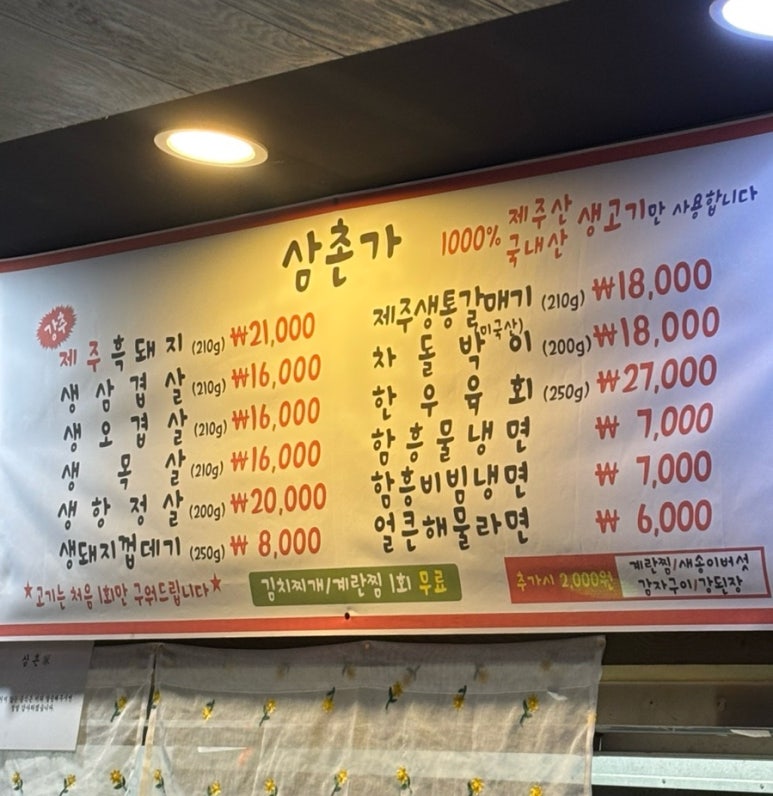 삼촌가
1000% 제주산 국내산 생고기만 사용합니다
강추
제주흑돼지 (210g) ₩21,000
생삼겹살 (210g) ₩16,000
생오겹살 (210g) ₩16,000
생목살 (210g) ₩16,000
생항정살 (200g) ₩20,000
생돼지껍데기 (250g) ₩ 8,000
★고기는 처음 1회만 구워드립니다★
제주생통갈매기 (210g) ₩18,000
(미국산)
차돌박이 (200g) ₩18,000
한우육회 (250g) ₩27,000
함흥물냉면 ₩ 7,000
함흥비빔냉면 ₩ 7,000
얼큰해물라면 ₩ 6,000
김치찌개/계란찜 1회 무료
추가시 2,000원
계란찜/새송이버섯
감자구이/강된장
삼촌家